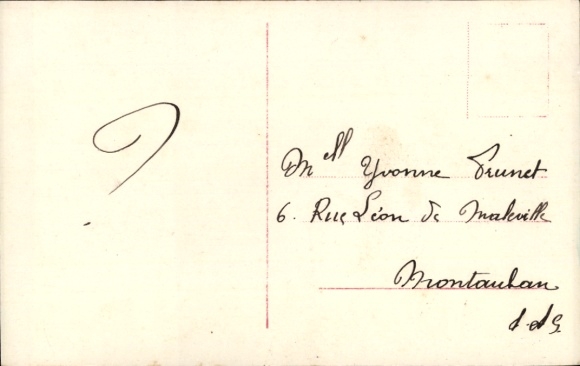 ?
Mell Yvonne Prunet
6. Rue Léon de Maleville
Montauban